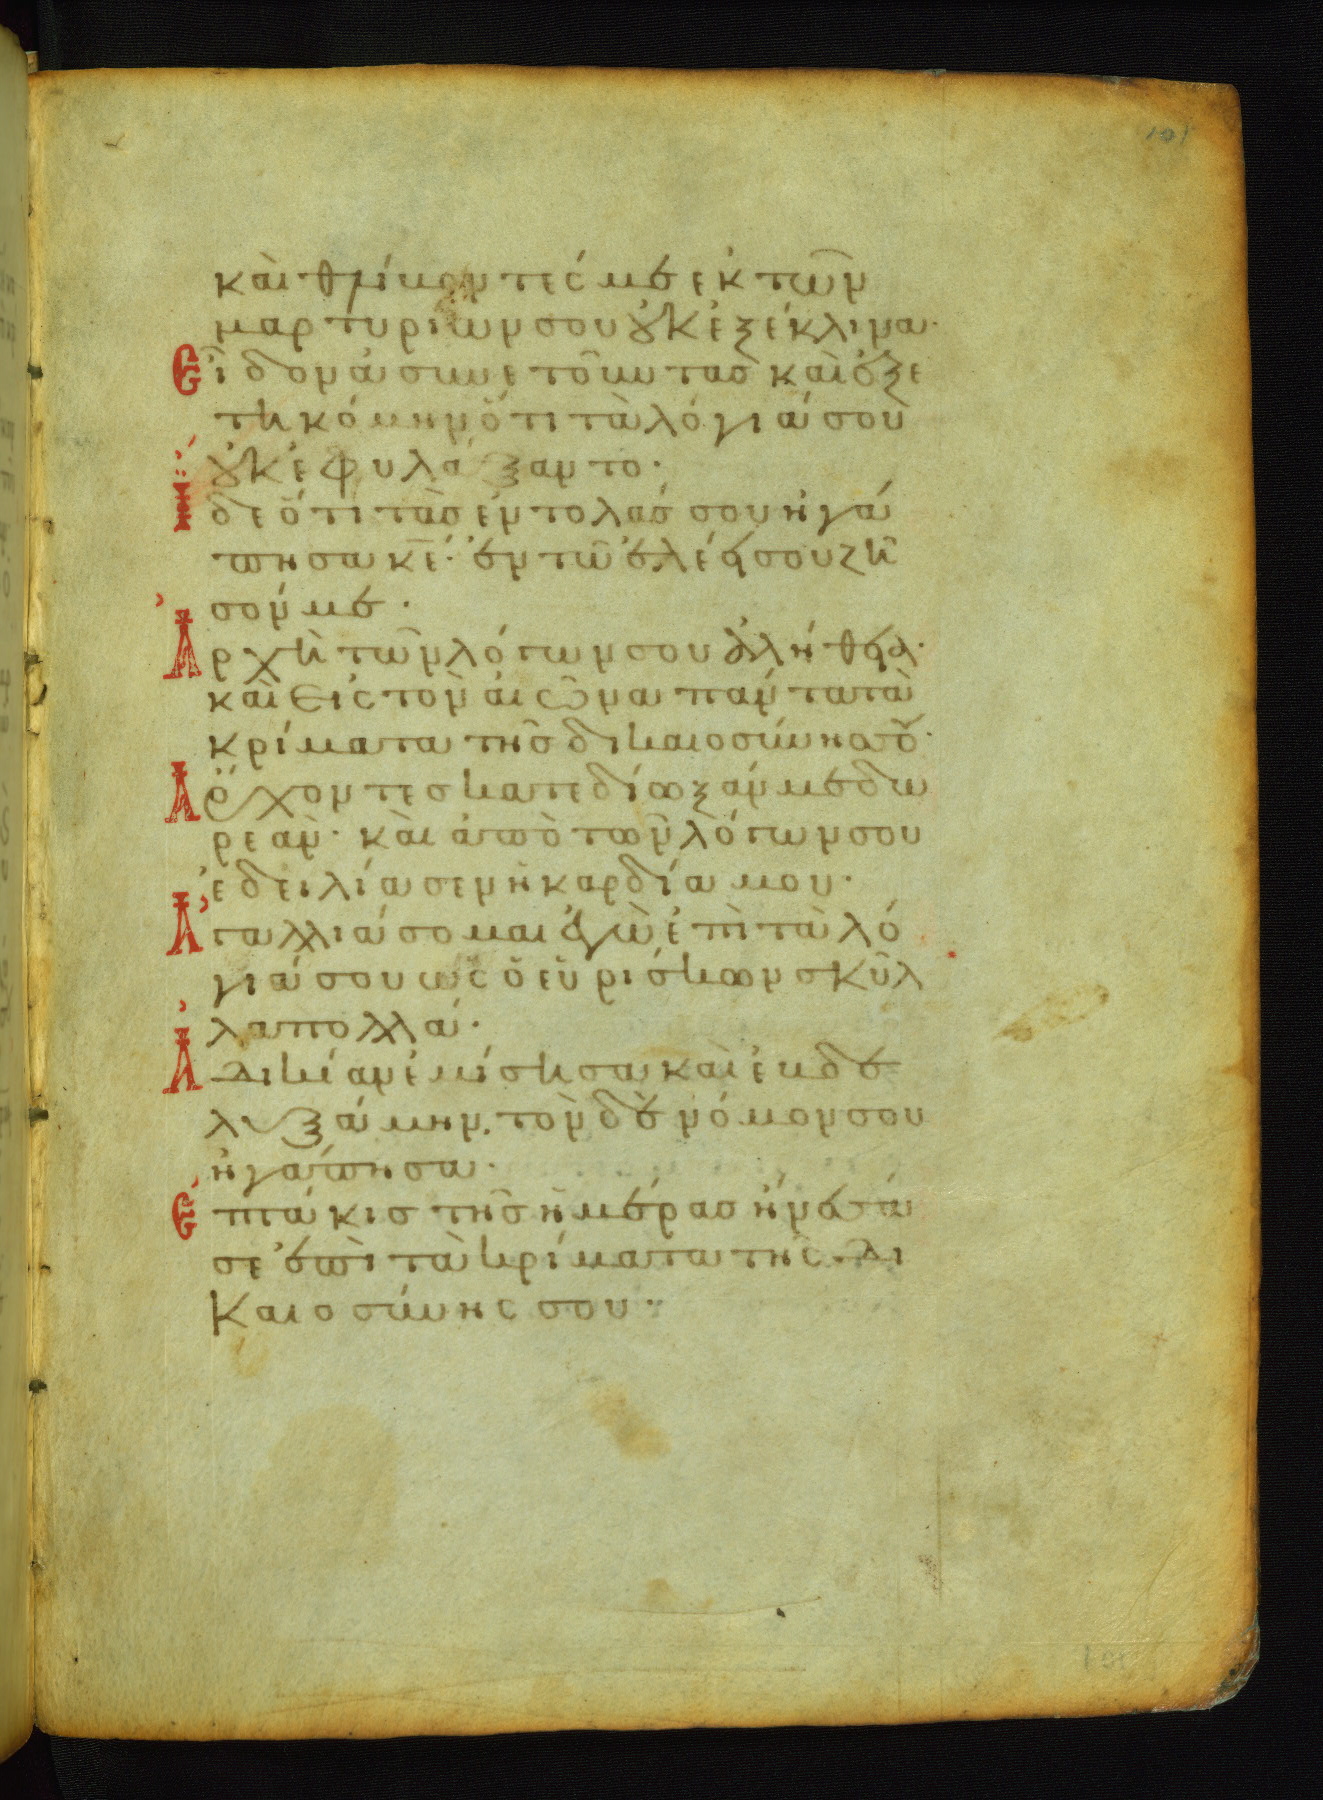 101
καὶ θλίβοντές με ἐκ τῶν
μαρτυριῶν σου οὐκ ἐξέκλινα·
Εἶδον ἀσυνετοῦντας καὶ ἐξε
τηκόμην ὅτι τὰ λόγιά σου
οὐκ ἐφυλάξαντο·
Ἴδε ὅτι τὰς ἐντολάς σου ἠγά
πησα κε̅· ἐν τῷ ἐλέει σου ζῆ
σόν με·
Ἀρχὴ τῶν λόγων σου ἀλήθεια·
καὶ εἰς τὸν αἰῶνα πάντα τὰ
κρίματα τῆς δικαιοσύνης σου·
Ἄρχοντες κατεδίωξάν με δω
ρεάν· καὶ ἀπὸ τῶν λόγων σου
ἐδειλίασεν ἡ καρδία μου·
Ἀγαλλιάσομαι ἐγὼ ἐπὶ τὰ λό
γιά σου ὡς ὁ εὑρίσκων σκῦλ
λα πολλά·
Ἀδικίαν ἐμίσησα καὶ ἐβδε
λυξάμην, τὸν δὲ νόμον σου
ἠγάπησα·
Ἑπτάκις τῆς ἡμέρας ᾔνεσά
σε ἐπὶ τὰ κρίματα τῆς δι
καιοσύνης σου·